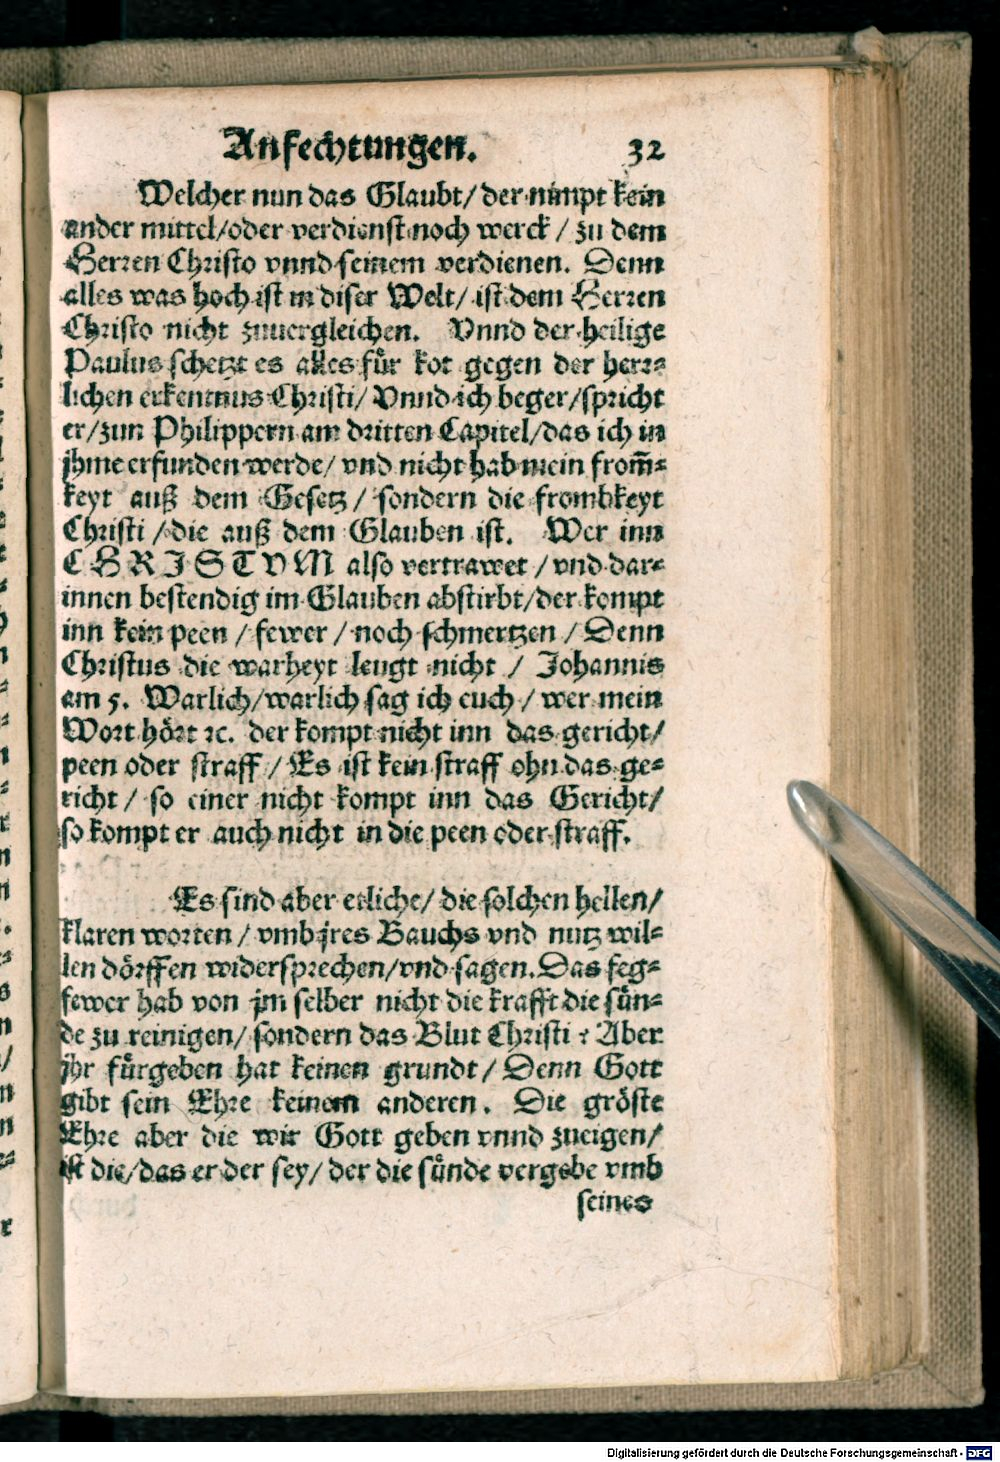 Anfechtungen. 32
Welcher nun das Glaubt/ der nimpt kein
ander mittel/oder verdienst noch werck / zu dem
Herren Christo vnnd seinem verdienen. Denn
alles was hoch ist in diser Welt/ ist dem Herren
Christo nicht zuuergleichen. Vnnd der heilige
Paulus schetzt es alles fuͤr kot gegen der herr⸗
lichen erkentnus Christi/ Vnnd ich beger/spricht
er/zun Philippern am dritten Capitel/das ich in
jhme erfunden werde/ vnd nicht hab mein from̃⸗
keyt auß dem Gesetz / sondern die frombkeyt
Christi /die auß dem Glauben ist. Wer inn
CHRISTVM also vertrawet / vnd dar⸗
innen bestendig im Glauben abstirbt/der kompt
inn kein peen / fewer / noch schmertzen / Denn
Christus die warheyt leugt nicht / Johannis
am 5. Warlich/warlich sag ich euch / wer mein
Wort hoͤrt ꝛc. der kompt nicht inn das gericht/
peen oder straff / Es ist kein straff ohn das ge⸗
richt / so einer nicht kompt inn das Gericht/
so kompt er auch nicht in die peen oder straff.
Es sind aber etliche/ die solchen hellen/
klaren worten / vmb jres Bauchs vnd nutz wil⸗
len doͤrffen widersprechen/vnd sagen. Das feg⸗
fewer hab von jm selber nicht die krafft die suͤn⸗
de zu reinigen/ sondern das Blut Christi : Aber
jhr fuͤrgeben hat keinen grundt / Denn Gott
gibt sein Ehre keinem anderen. Die groͤste
Ehre aber die wir Gott geben vnnd zueigen/
ist die/das er der sey/ der die suͤnde vergebe vmb
seines
Digitalisierung gefördert durch die Deutsche Forschungsgemeinschaft - DFG